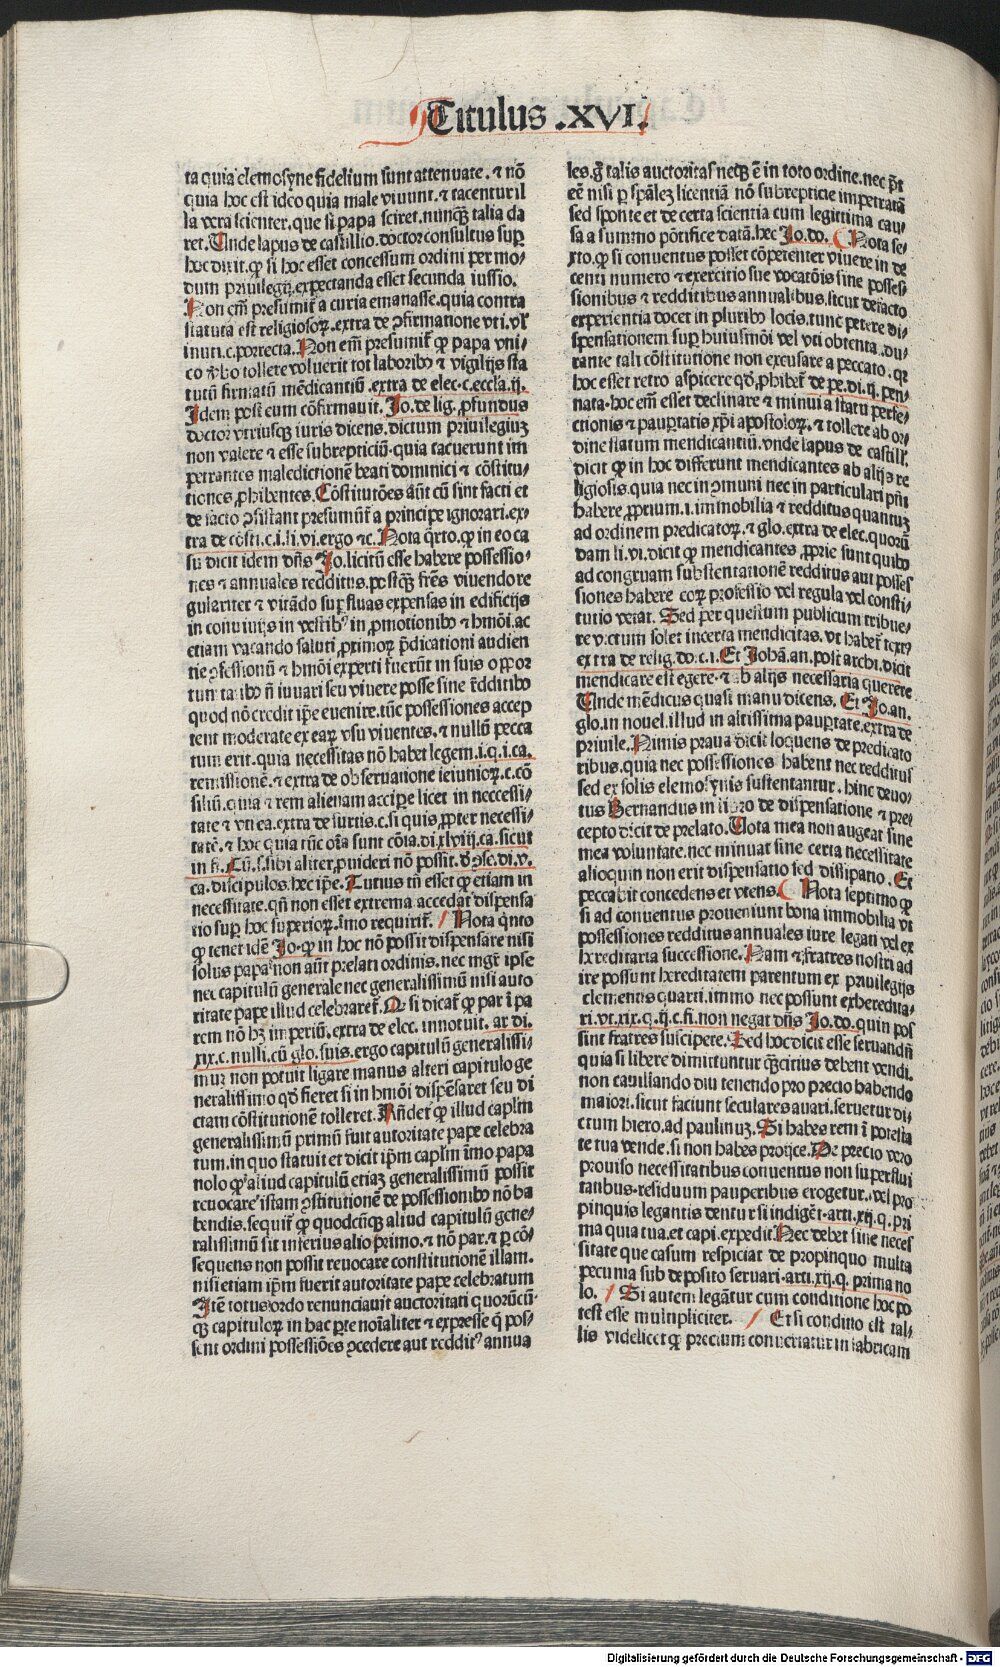 Titulus .XVI.
ta quia elemosyne fidelium sunt attenuate. ⁊ nō
quia hoc est ideo quia male viuunt. ⁊ tacentur il
la vera scienter. que si papa sciret. nunq̃ʒ talia da
ret. Unde lapus de castillio. doctor consultus suꝑ
hoc dixit. ꝙ si hoc esset concessum ordini per mo⸗
dum priuilegij. expectanda esset secunda iussio.
Non em̄ presumit᷑ a curia emanasse. quia contra
statuta est religiosoꝝ. extra de ꝯfirmatione vti. vl᷑
inuti. c. porrecta. Non em̄ presumit᷑ ꝙ papa vni⸗
co ꝟbo tollere voluerit tot laboribꝰ ⁊ vigilijs sta
tutū firmatū mēdicantiū. extra de elec. c. eccl̄a. ij.
Idem post eum cōfirmauit. Jo. de lig. ꝓfundus
doctor vtriusqʒ iuris dicens. dictum priuilegiuʒ
non valere ⁊ esse subrepticiū. quia tacuerunt im
petrantes maledictionē beati dominici ⁊ cōstitu⸗
tiones ꝓhibentes. Cōstitutōes aūt cū sint facti et
de facto ꝯsistant presumūt᷑ a principe ignorari. ex⸗
tra de cōsti. c. i. li. vi. ergo ⁊c. Nota q̄rto. ꝙ in eo ca
su dicit idem dn̄s Jo. licitū esse habere possessio⸗
nes ⁊ annuales redditus. postq̃ʒ fr̄es viuendo re
gulariter ⁊ vitādo suꝑfluas expensas in edificijs
in conuiuijs in vestibꝰ in ꝓmotionibꝰ ⁊ hmōi. ac
etiam vacando saluti ꝓximoꝝ p̄dicationi audien
tie ꝯfessionū ⁊ hmōi experti fuerūt in suis oppor
tunitatibꝰ nō iuuari seu viuere posse sine r̄dditibꝰ
quod nō credit ip̄e euenire. tūc possessiones accep
tent moderate ex eaꝝ vsu viuentes. ⁊ nullū pecca
tum erit. quia necessitas nō habet legem. i. q. i. ca.
remissionē. ⁊ extra de obseruatione ieiunioꝝ. c. cō
siliū. quia ⁊ rem alienam accipere licet in neccessi⸗
tate ⁊ vti ea. extra de furtis. c. si quis ꝓpter necessi⸗
tatē. ⁊ hoc quia tūc oīa sunt cōīa. di. xlviij. ca. sicut
in fi. Cū. s. sibi aliter ꝓuideri nō possit. de ꝯse. di. v.
ca. discipulos. hec ip̄e. Tutius tn̄ esset ꝙ etiam in
necessitate. qn̄ non esset extrema accedat dispensa
tio suꝑ hoc superioꝝ. īmo requirit᷑. Nota q̄nto
ꝙ tenet idē Jo. ꝙ in hoc nō possit dispensare nisi
solus papa. non aūt prelati ordinis. nec mgr̄ ipse
nec capitulū generale nec generalissimū nisi auto
ritate pape illud celebraret᷑. Et si dicat᷑ ꝙ par ī pa
rem nō hʒ imperiū. extra de elec. innotuit. ar di.
xix. c. nulli. cū glo. suis. ergo capitulū generalissi⸗
mum non potuit ligare manus alteri capitulo ge
neralissimo qd̄ fieret si in hmōi dispēsaret seu di
ctam cōstitutionē tolleret. Rn̄det᷑ ꝙ illud caplm̄
generalissimū primū fuit autoritate pape celebra
tum. in quo statuit et dicit ip̄m caplm̄ īmo papa
nolo ꝙ aliud capitulū etiaʒ generalissimū possit
reuocare istam ꝯstitutionē de possessionibꝰ nō ha
bendis. sequit᷑ ꝙ quodcūqʒ aliud capitulū gene⸗
ralissimū sit inferius alio primo. ⁊ nō par. ⁊ ꝑ cō⸗
sequens non possit reuocare constitutionē illam.
nisi etiam ip̄m fuerit autoritate pape celebratum
Itē totus ordo renunciauit auctoritati quorūcū⸗
qʒ capituloꝝ in hac ꝑte noīaliter ⁊ expresse q̇ pos⸗
sent ordini possessiōes ꝯcedere aut redditꝰ annua
les. gͦ talis auctoritas neqʒ ē in toto ordine. nec p̄t
eē nisi ꝑ sp̄alēʒ licentiā nō subrepticie impetratā
sed sponte et de certa scientia cum legittima cau⸗
sa a summo pōtifice datā. hec Jo. do. Nota se⸗
xto. ꝙ si conuentus posset cōpetenter viuere in de
centi numero ⁊ exercitio sue vocatōis sine posses⸗
sionibus ⁊ redditibus annualibus. sicut defacto
experientia docet in pluribꝰ locis. tunc petere di⸗
spensationem suꝑ huiusmōi vel vti obtenta. du⸗
rante tali cōstitutione non excusare a peccato. qꝛ
hoc esset retro aspicere qd̄ ꝓhibet᷑ de pe. di. ij. pen⸗
nata. hoc em̄ esset declinare ⁊ minui a statu perfe⸗
ctionis ⁊ pauꝑtatis xp̄i apostoloꝝ. ⁊ tollere ab or⸗
dine statum mendicantiū. vnde lapus de castill.
dicit ꝙ in hoc differunt mendicantes ab alijs re
ligiosis. quia nec in ꝯmuni nec in particulari p̄nt
habere ꝓprium. i. immobilia ⁊ redditus quantuʒ
ad ordinem predicatoꝝ. ⁊ glo. extra de elec. quorū
dam li. vi. dicit ꝙ mendicantes ꝓprie sunt quibꝰ
ad congruam substentationē redditus aut posses
siones habere eoꝝ professio vel regula vel consti⸗
tutio vetat. Sed per questum publicum tribue⸗
re victum solet incerta mendicitas. vt habet᷑ text᷒
extra de relig. do. c. i. Et Johā. an. post archi. dicit
mendicare est egere. ⁊ ab alijs necessaria querere
Unde mēdicus quasi manu dicens. Et Jo. an.
glo. in nouel. illud in altissima pauꝑtate. extra de
priuile. Nimis praua dicit loquens de predicato
ribus. quia nec possessiones habent nec redditus
sed ex solis elemosynis sustentantur. hinc deuo⸗
tus Bernardus in libro de dispensatione ⁊ pre⸗
cepto dicit de prelato. Uota mea non augeat sine
mea voluntate. nec minuat sine certa necessitate
alioquin non erit dispensatio sed dissipatio. Et
peccabit concedens et vtens. Nota septimo ꝙ
si ad conuentus proueniunt bona immobilia vt
possessiones redditus annuales iure legati vel ex
hereditaria successione. Nam ⁊ fratres nostri ad
ire possunt hereditatem parentum ex priuilegijs
clementis quarti. immo nec possunt exhereda⸗
ri. vt. xix. q. ij. c. fi. non negat dn̄s Jo. do. quin pos
sint fratres suscipere. Sed hoc dicit esse seruandū
quia si libere dimittuntur q̃ʒcitius debent vendi.
non cauillando diu tenendo pro precio habendo
maiori. sicut faciunt seculares auari. seruetur di⸗
ctum hiero. ad paulinuʒ. Si habes rem ī potesta
te tua vende. si non habes proijce. De precio vero
prouiso necessitatibus conuentus non superflui
tatibus. residuum pauperibus erogetur. vel pro
pinquis legantis dentur si indigēt. arti. xij. q. pri
ma quia tua. et capi. expedit. Nec debet sine neces
sitate que casum respiciat de propinquo multa
pecunia sub deposito seruari. arti. xij. q. prima no
lo. Si autem legātur cum conditione hoc po
test esse multipliciter. Et si conditio est tal⸗
lis videlicet ꝙ precium conuertatur in fabricam
Digitalisierung gefördert durch die Deutsche Forschungsgemeinschaft - DFG